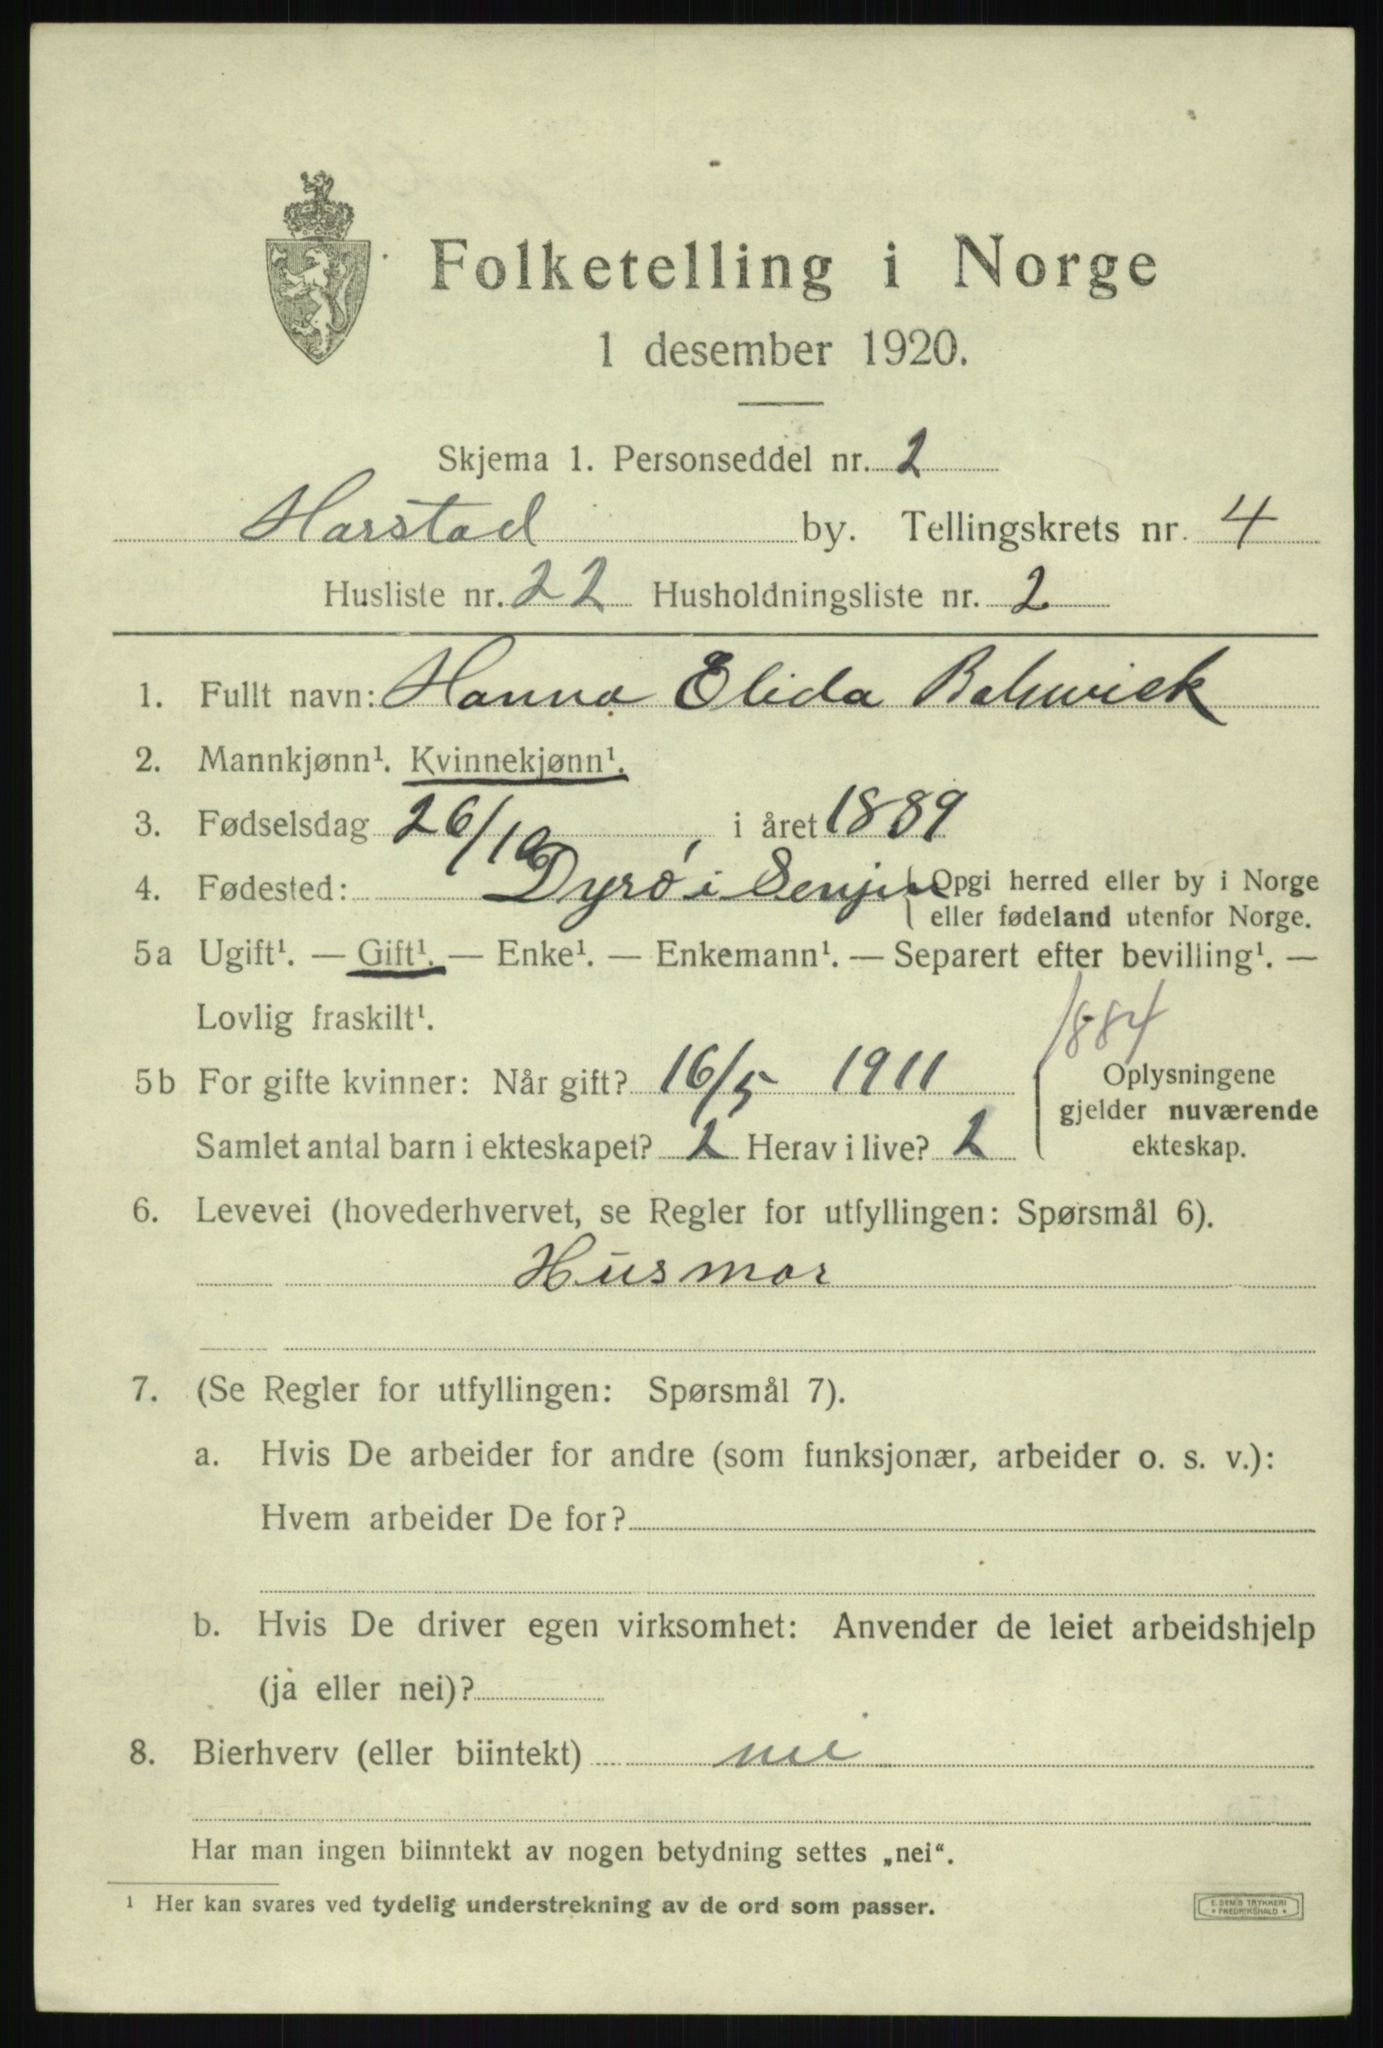 Folketelling i Norge
1 desember 1920.
Skjema 1. Personseddel nr. 2
Harstad by. Tellingskrets nr. 4
Husliste nr. 22 Husholdningsliste nr. 2
1. Fullt navn: Hanna Elida
2. Mannkjønn¹. Kvinnekjønn¹.
3. Fødselsdag 26/10, i året 1889
4. Fødested: Dyrö i Senjen Opgi herred eller by i Norge
eller fødeland utenfor Norge.
5a Ugift¹. — Gift¹. — Enke¹. — Enkemann¹. — Separert efter bevilling¹. —
Lovlig fraskilt¹.
1884
5b For gifte kvinner: Når gift? 16/5 1911
Samlet antal barn i ekteskapet? 2 Herav i live? 2
Oplysningene
gjelder nuværende
ekteskap.
6. Levevei (hovederhvervet, se Regler for utfyllingen: Spørsmål 6).
Husmor
7. (Se Regler for utfyllingen: Spørsmål 7).
a. Hvis De arbeider for andre (som funksjonær, arbeider o. s. v.):
Hvem arbeider De for?
b. Hvis De driver egen virksomhet: Anvender de leiet arbeidshjelp
(ja eller nei)?
8. Bierhverv (eller biintekt) nei
Har man ingen biinntekt av nogen betydning settes „nei“.
¹ Her kan svares ved tydelig understrekning av de ord som passer.
E. SEM'S TRYKKERI
* FREDRIKSHALD *